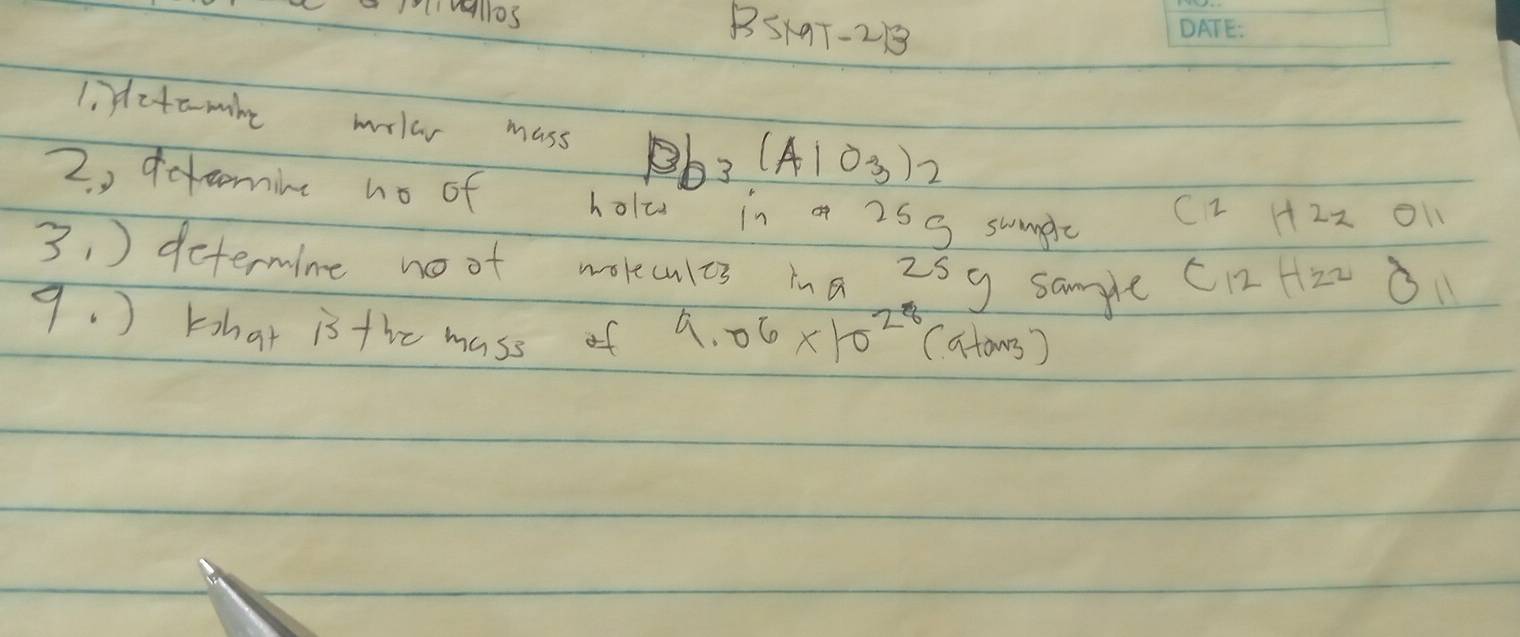 BSMAT-2B
DATE:
1.) determine molar mass Pb3 (AlO3)2
2.) determine no of moles in a 25g sample C12 H22 O11
3.) determine no of molecules in a 25g sample C12 H22 O11
4.) what is the mass of 9.06 x 10^28 (atoms)